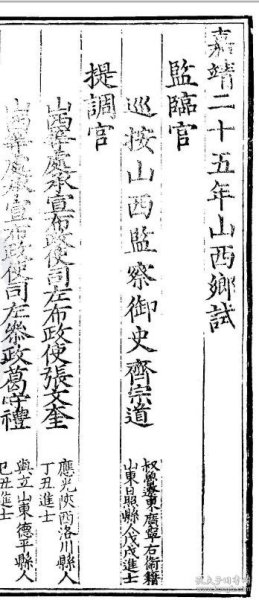 嘉靖二十五年山西鄉試
監臨官
巡按山西監察御史齊宗道
叔魯遼東廣寧右衛籍
山東日照縣人戊戌進士
提調官
山西等處承宣布政使司左布政使張文奎
應光陝西洛川縣人
丁丑進士
山西等處承宣布政使司左參政葛守禮
與立山東德平縣人
己丑進士